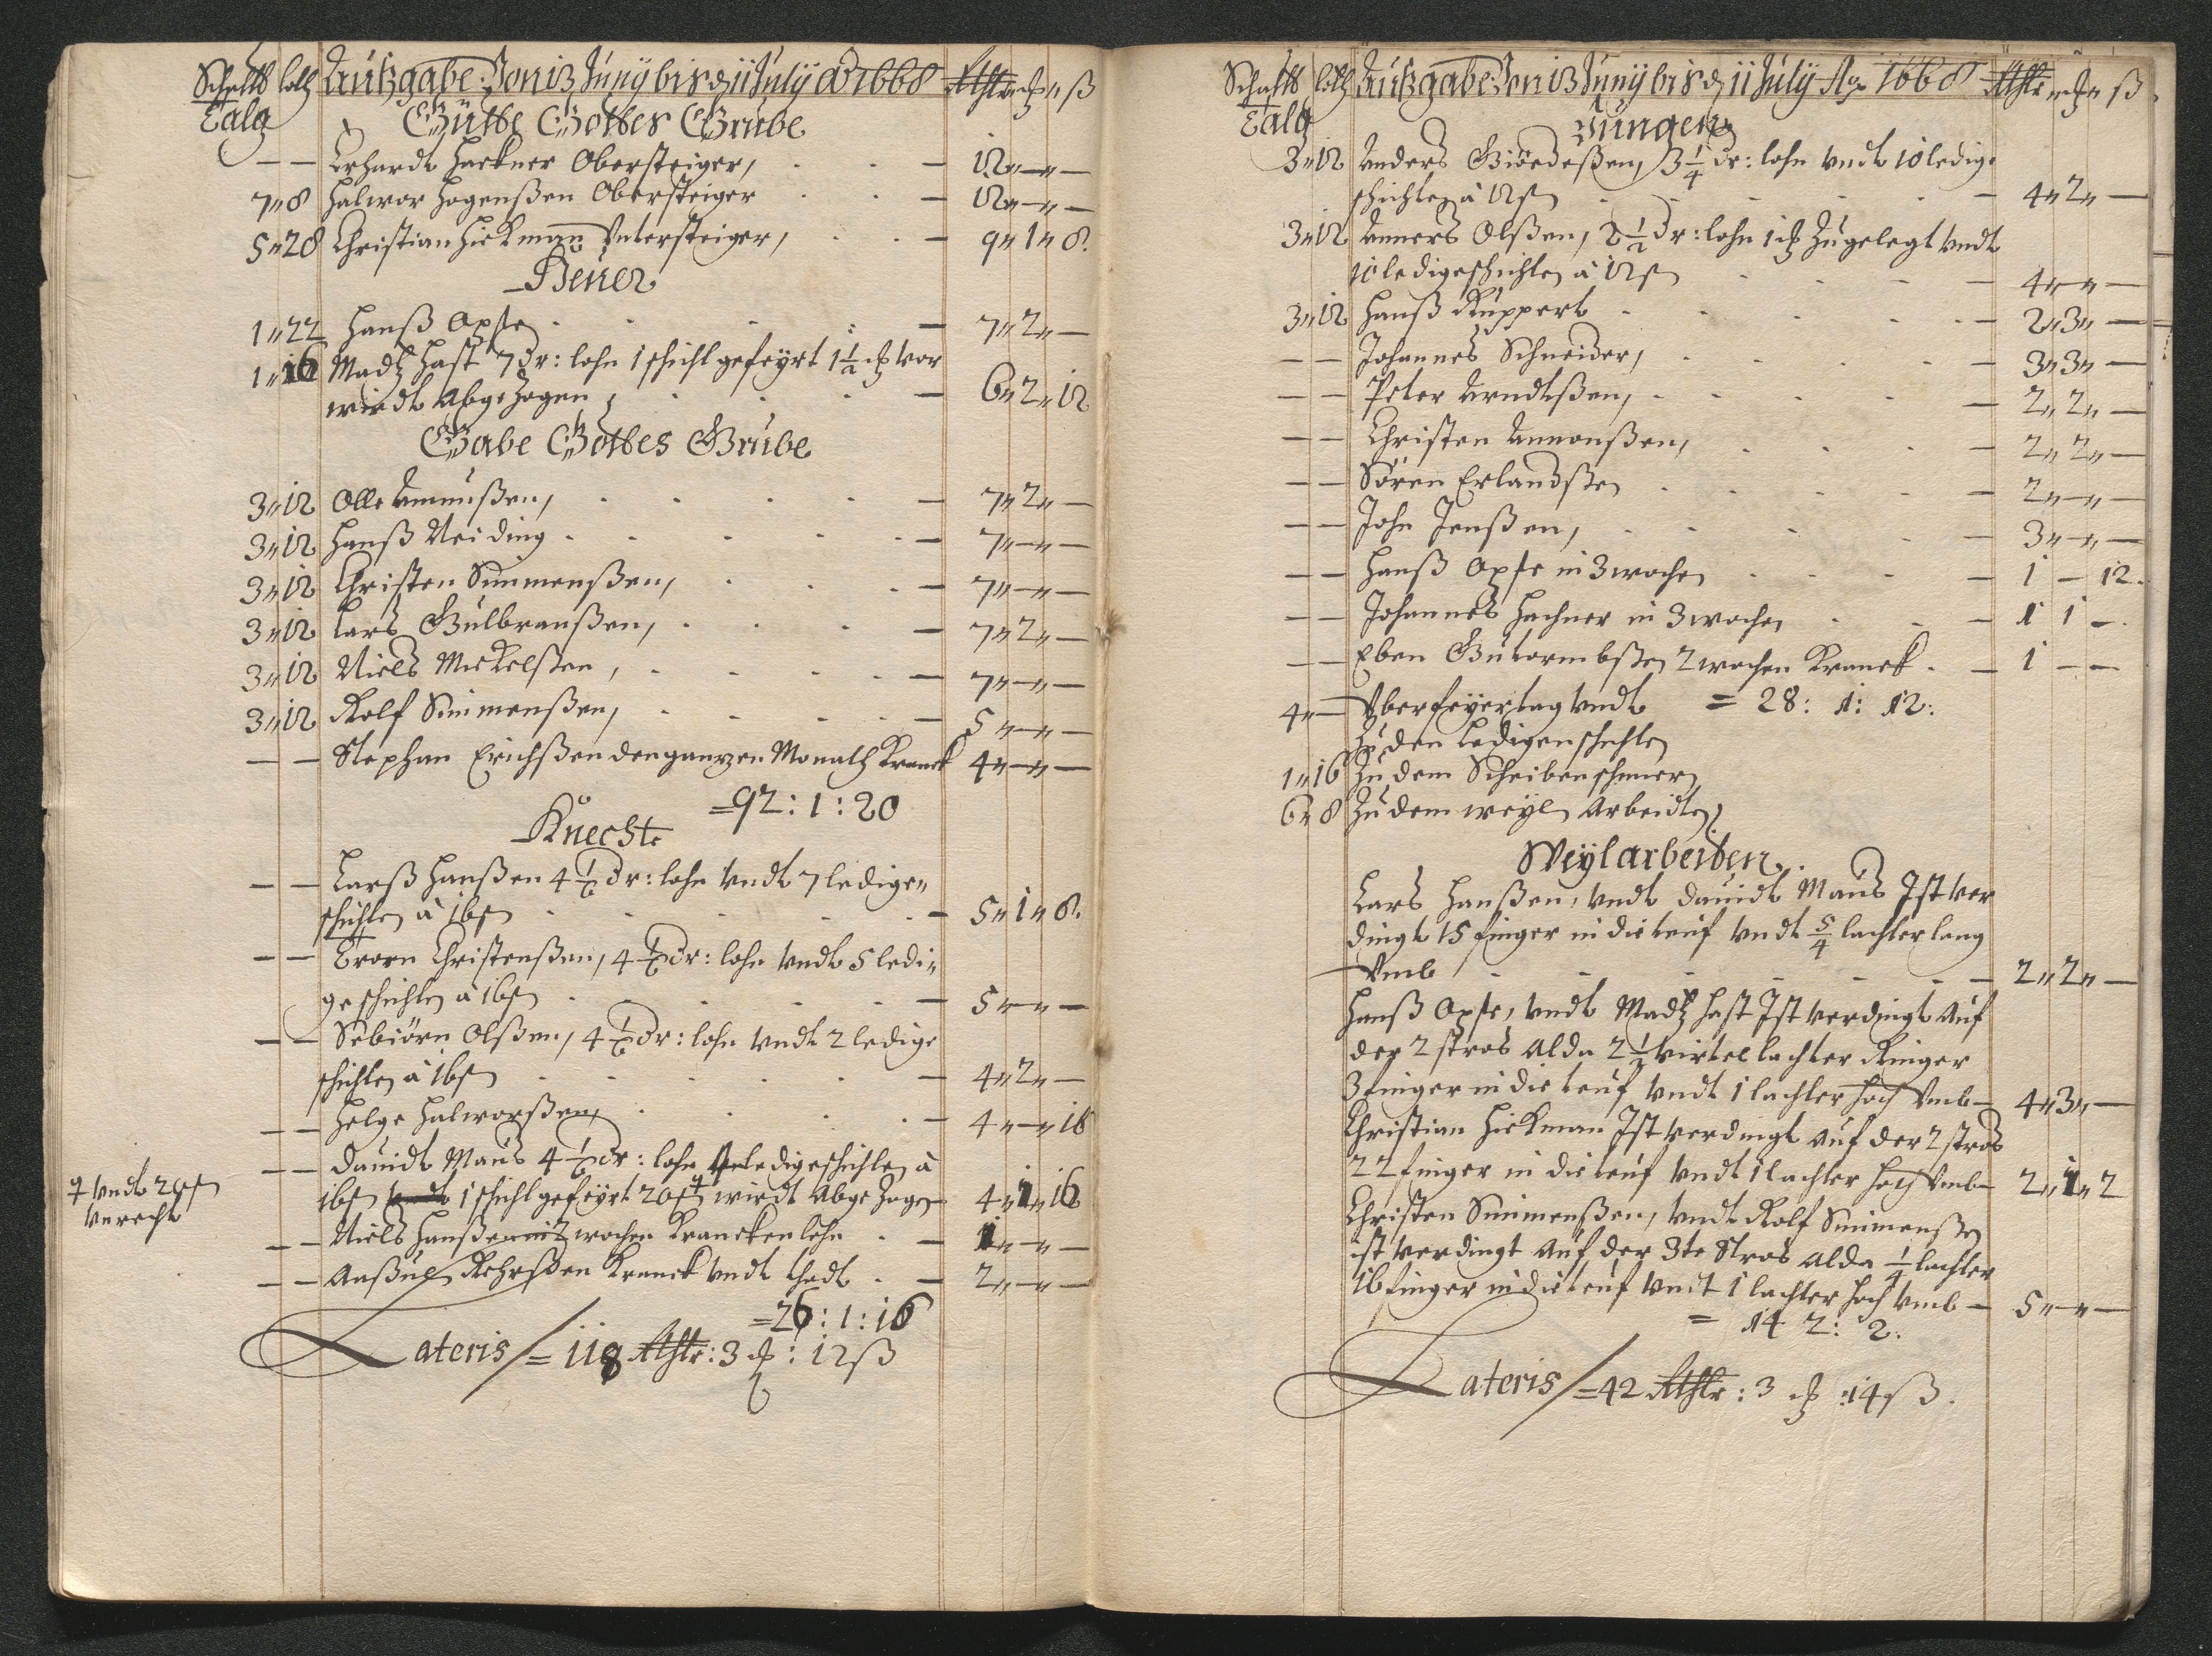 Talg
Außgabe: Von 13 Junÿ bis d 11 Julÿ Ao 1668 Rthlr ß
Gütte Gottes Grube
— — Erhardt Hackner Obersteiger, — 12 " — " —
7 " 8 Halwor Hogenßen Obersteiger — 12 " — " —
5 " 28 Christian Hickman Untersteiger, — 9 " 1 " 8.
Heuer
1 " 22 Hanß — 7 " 2 " —
1 " 16 Madtz Hast 7 dr: lohn 1 schicht gefeyrt 1 1/2 vor
wirdt abgezogen, — 6 " 2 " 12
Gabe Gottes Grube
3 " 12 Olle Amunßen, — 7 " 2 " —
3 " 12 Hanß Neiding — 7 " — " —
3 " 12 Christen Simmenßen, — 7 " — " —
3 " 12 Lars Gulbranßen, — 7 " 2 " —
3 " 12 Niels Mickelßen, — 7 " — " —
3 " 12 Rolf Simmenßen, — 5 " — " —
— — Stephan Erichßen den ganzen Monath Kranck 4 " — " —
= 92 : 1 : 20
Knechte
— — Larß Hanßen 4 1/2 dr: lohn undt 7 ledige "
schichten à 16 ß — 5 " 1 " 8.
— — Christenßen, 4 1/2 dr: lohn undt 5 ledi "
geschichten à 16 ß — 5 " — " —
— — Sebiörn Olßen, 4 1/2 dr: lohn undt 2 ledige
schichten à 16 ß — 4 " 2 " —
— — Helge Halworßen, — 4 " — " 16
— — Davidt Maus 4 1/2 dr: lohn ledigeschichten à
16 ß 1 schicht gefeyrt 20 ß wirdt abgezogen 4 " 1 " 16
undt 20 ß
unrecht
— — Niels Hanßen wochen Kranckenlohn — 1 " — " —
— — Kranck undt thodt — 2 " — " —
= 26 : 1 : 16
Lateris / = 118 Rthlr : 3 : 12 ß
Talg
Außgabe: Von 13 Junÿ bis d 11 Julÿ Ao 1668 Rthlr ß
Jungen
3 " 12 Anders Giördeßen, 3 1/4 dr: lohn undt 10 ledige
schichten à 12 ß — 4 " 2 " —
3 " 12 Anners Olßen, 2 1/2 dr: lohn 1 zugelegt undt
10 ledigeschichten à 12 ß — 4 " — " —
3 " 12 Hanß Ruppert — 2 " 3 " —
— — Johannes Schneider, — 3 " 3 " —
— — Peter Arndtßen, — 2 " 2 " —
— — Christen Ammonßen, — 2 " 2 " —
— — Sören Erlandßen — 2 " — " —
— — John Jenßen, — 3 " — " —
— — Hanß in 3 wochen — 1 — 12.
— — Johannes Hachner in 3 wochen — 1 1 —
— — Eben Gutormbßen 2 wochen Kranck — 1 — —
4 " — Uberfeyertag undt = 28 : 1 : 12 :
Zu den ledigenschichten
1 " 16 Zu dem Scheibenschmier
6 " 8 Zu dem weyl Arbeidten
Weÿlarbeiten
Lars Hanßen, undt Davidt Maus Ist ver
dingt 15 finger in die teuf undt 5/4 lachter lang
umb — 2 " 2 " —
Hanß undt Madtz Hast Ist verdingt auf
der 2 stros alda 2 1/2 virtel lachter
3 finger in die teuf undt 1 lachter hoch umb — 4 " 3 " —
Christian Hickman Ist verdingt auf der 2 stros
22 finger in die teuf undt 1 lachter hoch umb — 2 " 1 " 2
Christen Simmenßen, undt Rolf Simmenßen
ist verdingt auf der 3te Stros alda 1/4 lachter
16 finger in die teuf undt 1 lachter hoch umb — 5 " — " —
= 14 2 : 2.
Lateris / = 42 Rthlr : 3 : 14 ß.